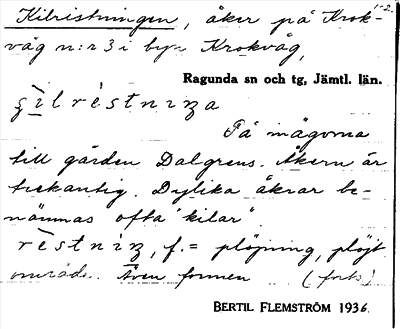 Kilristningen, åker på Krok-
1-2.
våg n:r 3 i byn Krokvåg,
Ragunda sn och tg, Jämtl. län.
På ingorna
till gården Dalgrens. Åkern är
trekantig. Dylika åkrar be-
nämnas ofta "kilar"
f. = plöjning, plöjt
område. Även formen (forts)
BERTIL FLEMSTRÖM 1936.